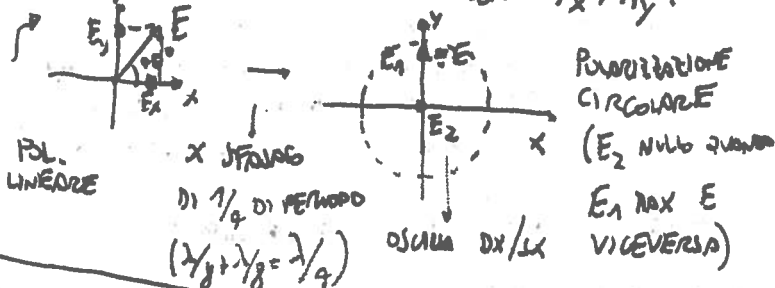 Ey E
Ex x
POL.
LINEARE
X SFASATO
DI 1/4 DI PERIODO
(λ/8+λ/8=λ/4)
y
E1 = E
E2
X
OSCILLA DX/SX
POLARIZZAZIONE
CIRCOLARE
(E2 NULLO QUANDO
E1 MAX E
VICEVERSA)